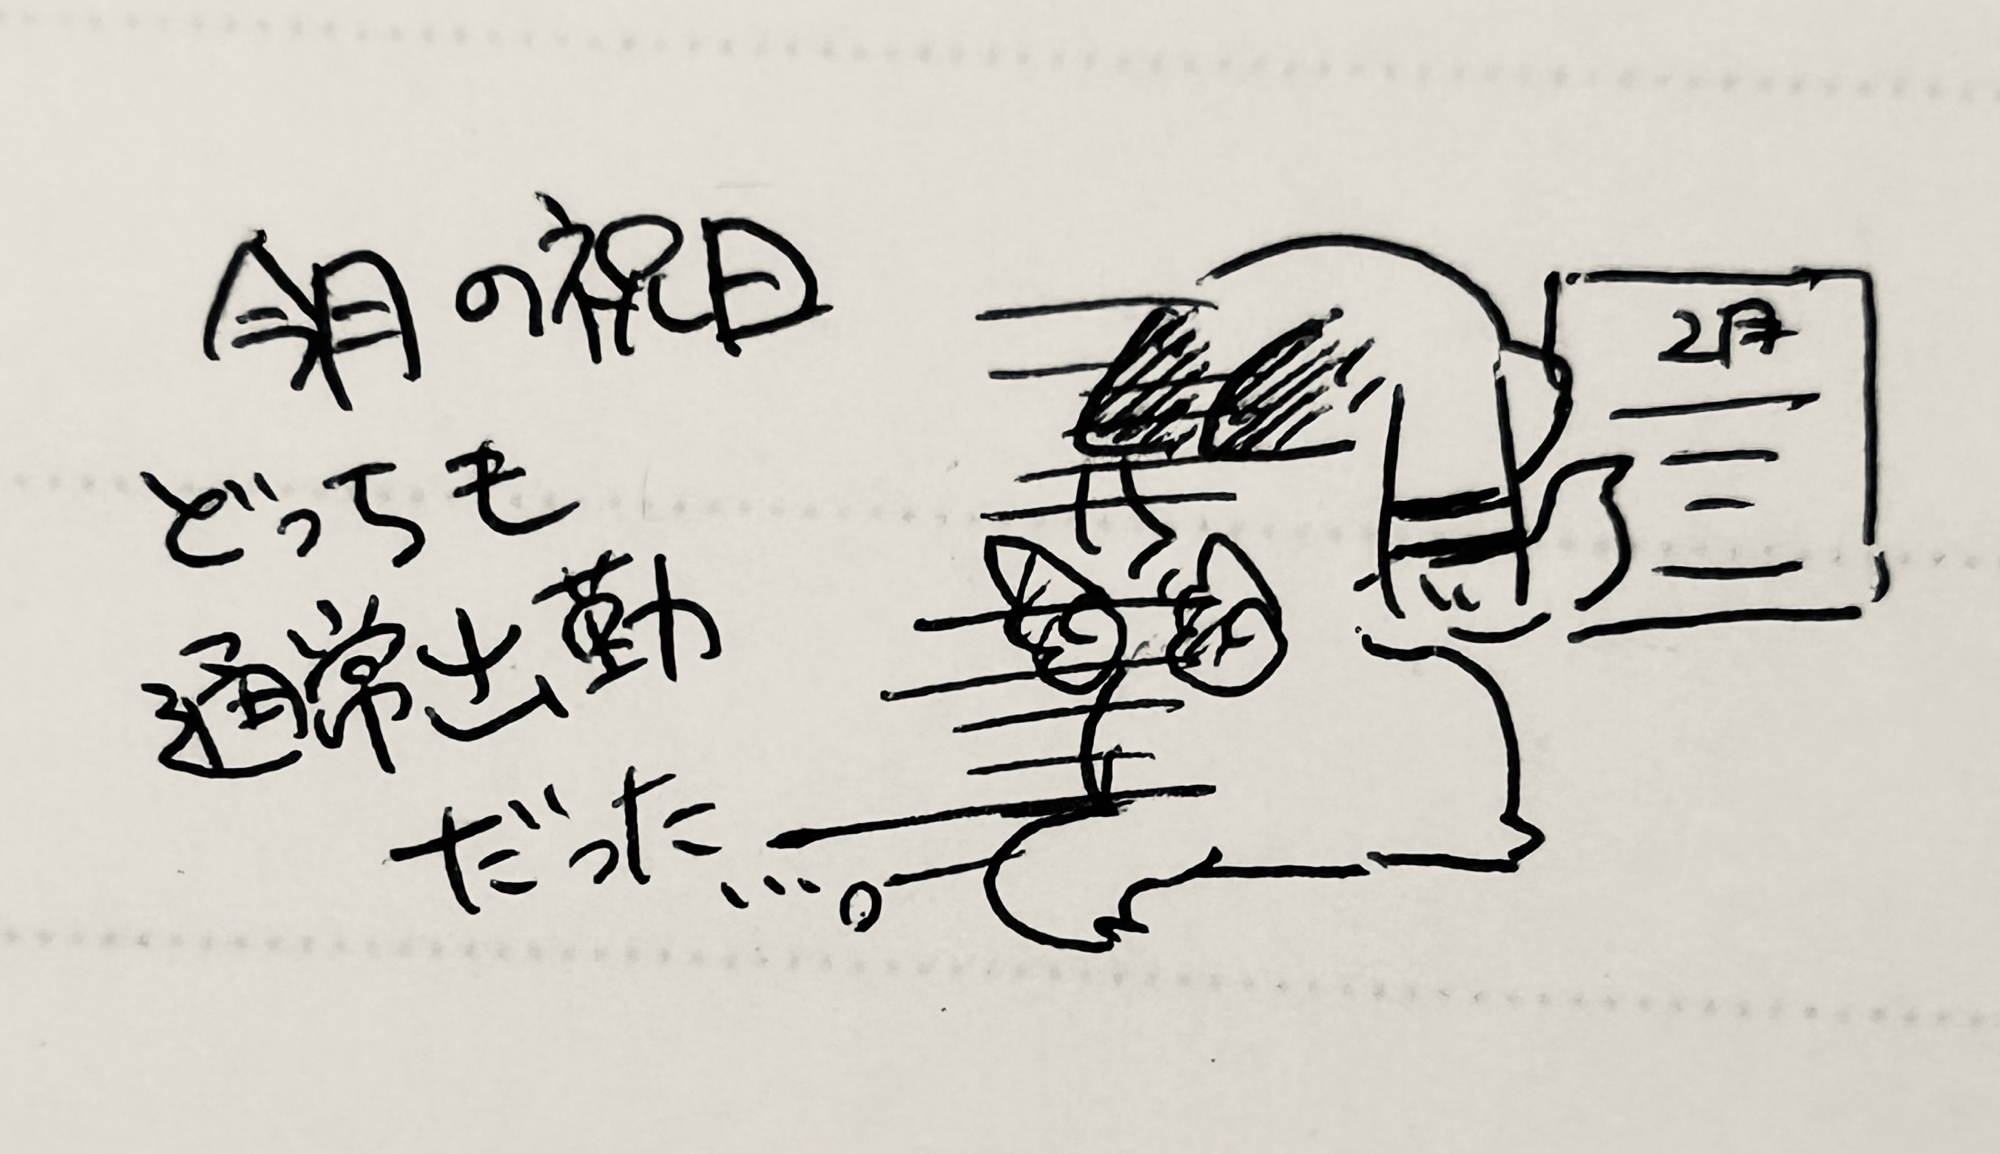 今月の祝日
どっちも
通常出勤
だった…。
2月